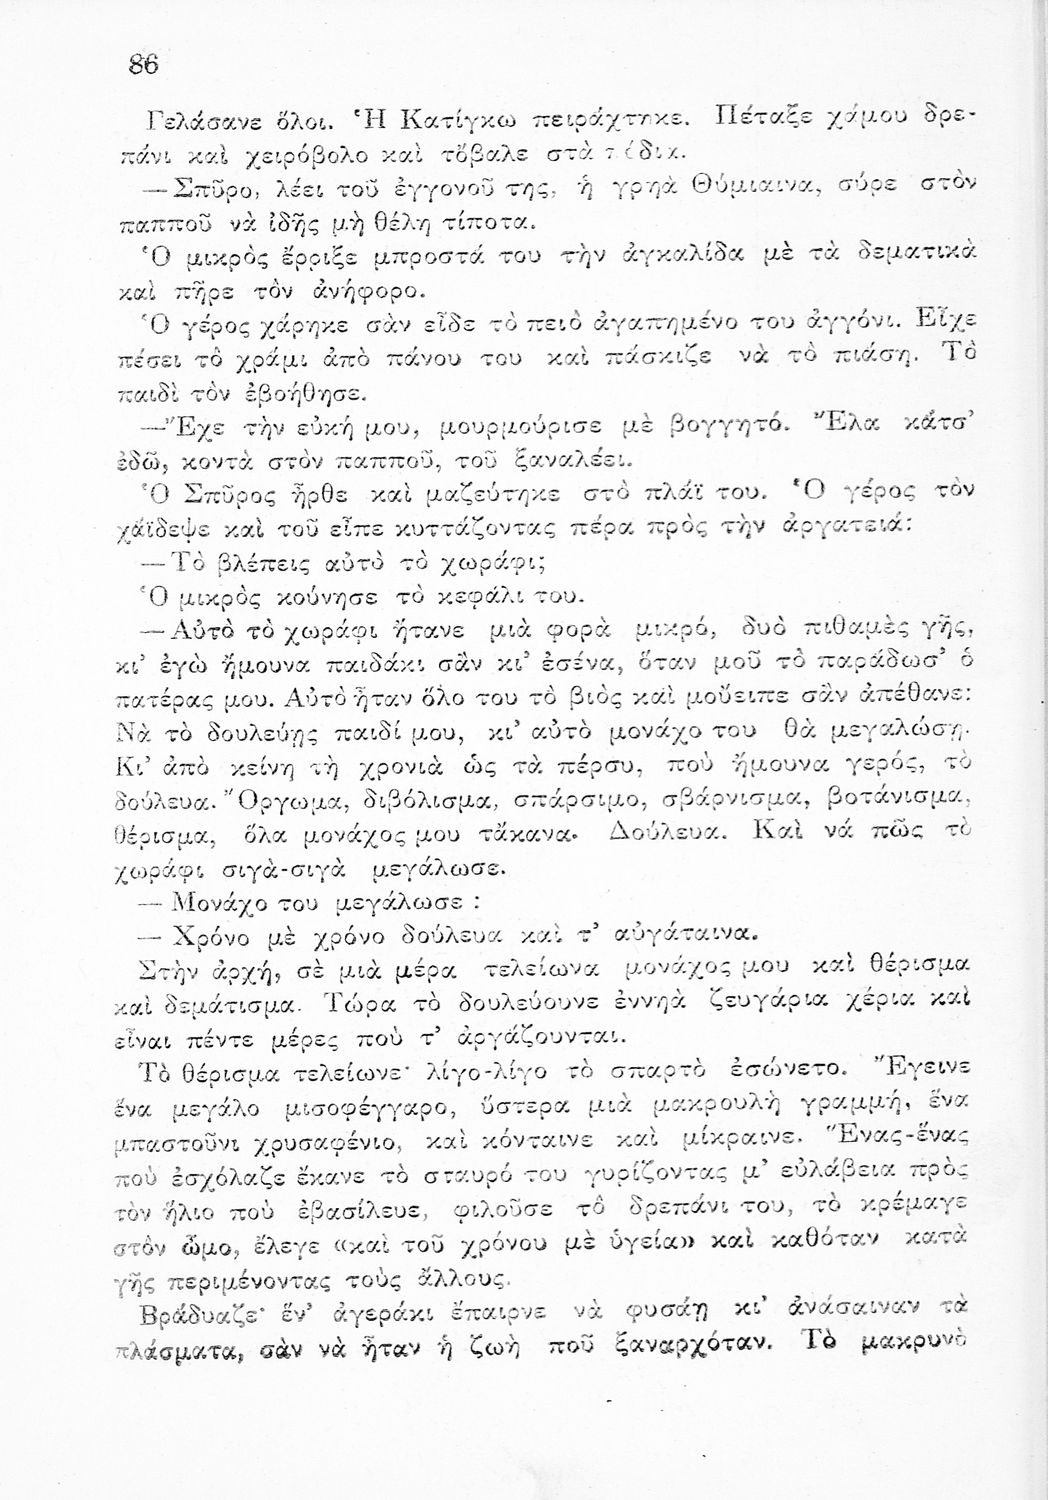 86
Γελάσανε ὅλοι. Ἡ Κατίγκω πειράχτηκε. Πέταξε χάμου δρε-
πάνι καὶ χειρόβολο καὶ τὄβαλε στὰ πόδια.
— Σπῦρο, λέει τοῦ ἐγγονοῦ της, ἡ γρηὰ Θύμιαινα, σύρε στὸν
παπποῦ νὰ ἰδῇς μὴ θέλη τίποτα.
Ὁ μικρὸς ἔρριξε μπροστά του τὴν ἀγκαλίδα μὲ τὰ δεματικὰ
καὶ πῆρε τὸν ἀνήφορο.
Ὁ γέρος χάρηκε σὰν εἶδε τὸ πειὸ ἀγαπημένο του ἀγγόνι. Εἶχε
πέσει τὸ χράμι ἀπὸ πάνου του καὶ πάσκιζε νὰ τὸ πιάση. Τὸ
παιδὶ τὸν ἐβοήθησε.
—Ἔχε τὴν εὐκή μου, μουρμούρισε μὲ βογγητό. Ἔλα κᾶτσ’
ἐδῶ, κοντὰ στὸν παπποῦ, τοῦ ξαναλέει.
Ὁ Σπῦρος ἦρθε καὶ μαζεύτηκε στὸ πλάϊ του. Ὁ γέρος τὸν
χάϊδεψε καὶ τοῦ εἶπε κυττάζοντας πέρα πρὸς τὴν ἀργατειά:
— Τὸ βλέπεις αὐτὸ τὸ χωράφι;
Ὁ μικρὸς κούνησε τὸ κεφάλι του.
— Αὐτὸ τὸ χωράφι ἤτανε μιὰ φορὰ μικρό, δυὸ πιθαμὲς γῆς,
κι’ ἐγὼ ἤμουνα παιδάκι σὰν κι’ ἐσένα, ὅταν μοῦ τὸ παράδωσ’ ὁ
πατέρας μου. Αὐτὸ ἦταν ὅλο του τὸ βιὸς καὶ μοὔειπε σὰν ἀπέθανε:
Νὰ τὸ δουλεύῃς παιδί μου, κι’ αὐτὸ μονάχο του θὰ μεγαλώσῃ.
Κι’ ἀπὸ κείνη τὴ χρονιὰ ὡς τὰ πέρσυ, ποὺ ἤμουνα γερός, τὸ
δούλευα. Ὄργωμα, διβόλισμα, σπάρσιμο, σβάρνισμα, βοτάνισμα,
θέρισμα, ὅλα μονάχος μου τἄκανα. Δούλευα. Καὶ νά πῶς τὸ
χωράφι σιγὰ-σιγὰ μεγάλωσε.
— Μονάχο του μεγάλωσε :
— Χρόνο μὲ χρόνο δούλευα καὶ τ’ αὐγάταινα.
Στὴν ἀρχή, σὲ μιὰ μέρα τελείωνα μονάχος μου καὶ θέρισμα
καὶ δεμάτισμα. Τώρα τὸ δουλεύουνε ἐννηὰ ζευγάρια χέρια καὶ
εἶναι πέντε μέρες ποὺ τ’ ἀργάζουνται.
Τὸ θέρισμα τελείωνε· λίγο-λίγο τὸ σπαρτὸ ἐσώνετο. Ἔγεινε
ἕνα μεγάλο μισοφέγγαρο, ὕστερα μιὰ μακρουλὴ γραμμή, ἕνα
μπαστοῦνι χρυσαφένιο, καὶ κόνταινε καὶ μίκραινε. Ἕνας-ἕνας
ποὺ ἐσχόλαζε ἔκανε τὸ σταυρό του γυρίζοντας μ’ εὐλάβεια πρὸς
τὸν ἥλιο ποὺ ἐβασίλευε, φιλοῦσε τὸ δρεπάνι του, τὸ κρέμαγε
στὸν ὦμο, ἔλεγε «καὶ τοῦ χρόνου μὲ ὑγεία» καὶ καθόταν κατὰ
γῆς περιμένοντας τοὺς ἄλλους.
Βράδυαζε· ἕν’ ἀγεράκι ἔπαιρνε νὰ φυσάῃ κι’ ἀνάσαιναν τὰ
πλάσματα, σὰν νὰ ἦταν ἡ ζωὴ ποῦ ξαναρχόταν. Τὸ μακρυνὸ